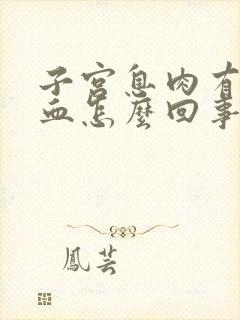 子宫息肉有
血怎麼回事
鳳芸